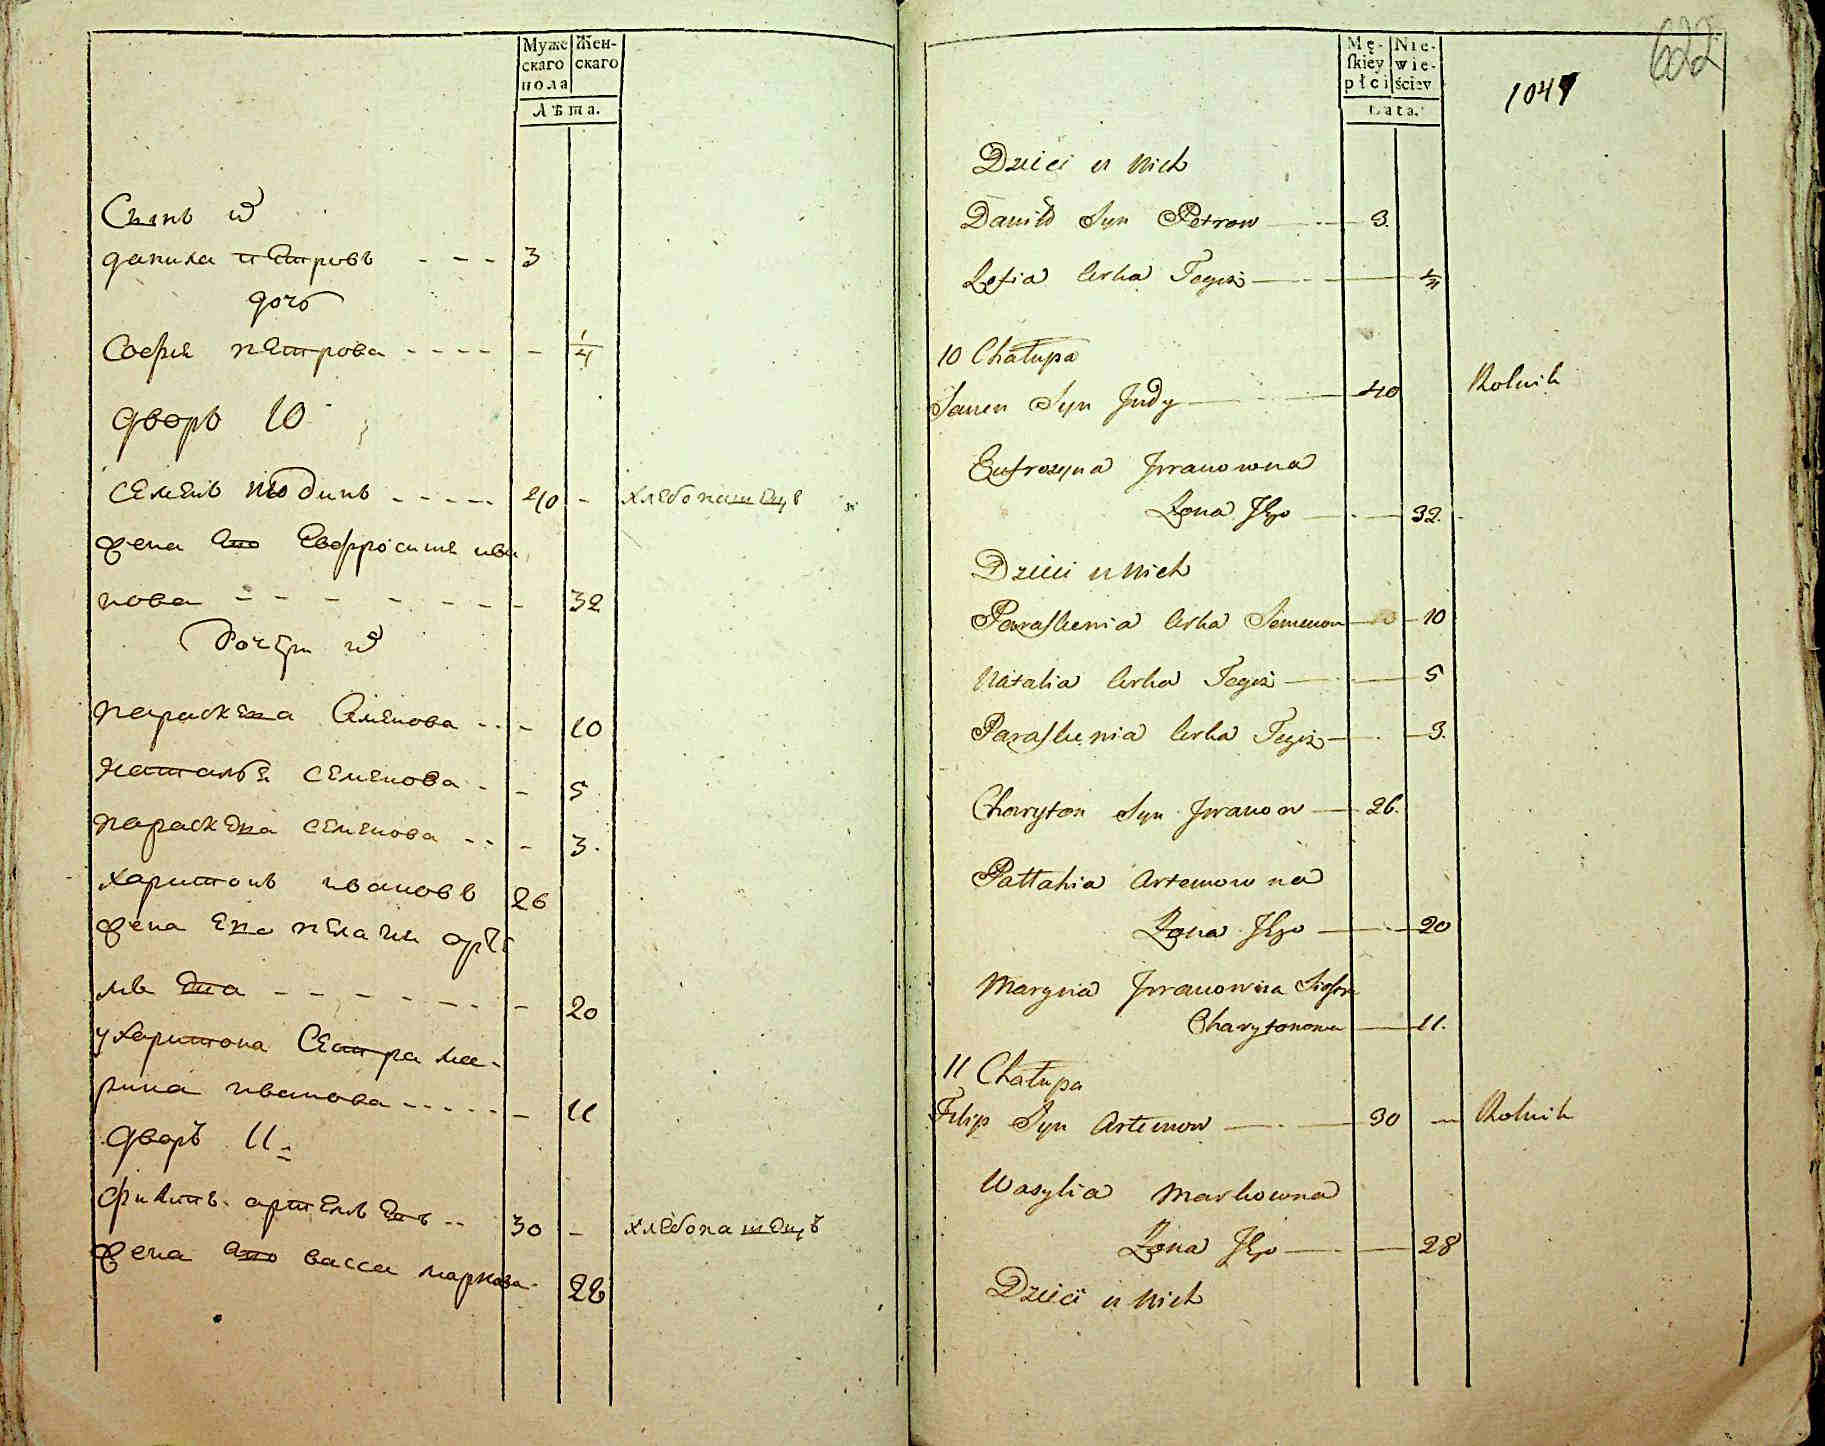 Муже
скаго
пола
Жен-
скаго
Лѣта.
Сынъ
данила петровъ - - - 3
дочь
Софiя петрова - - - - - 1/4
дворъ 10
Семенъ июдинъ - - - - - 40 - хлебопашецъ
жена ево Евфросиния ива
нова - - - - - - - - 32
дочери
параскева Семенова - - - 10
Наталья семенова - - 5
параскева семенова - - - 3.
харитонъ ивановъ 26
жена ево пелагия арте
мьева - - - - - - - 20
у харитона Сестра ма-
рина иванова - - - - - - 11
дворъ 11
филипъ артемьевъ - - 30 - хлебопашецъ
жена ево васса маркова - 28
Mę-
skiey
płci
Nie-
wie-
ściey
Lata.
1041
622
Dzieci u Nich
Daniło Syn Petrow 3.
Zofia Corka Tegoż 1/4
10 Chałupa
Semen Syn Judy 40 Rolnik
Eufrozyna Jwanowna
Zona Jego 32.
Dzieci u Nich
Paraskewia Corka Semenow 10
Natalia Corka Tegoż 5
Paraskewia Corka Tegoż 3.
Charyton Syn Jwanow 26.
Pałłahia Artemowna
Zona Jego 20
Maryna Jwanowna Siostra
Charytonowa 11.
11 Chałupa
Filip Syn Artemow 30 Rolnik
Wasylia Markowna
Zona Jego 28
Dzieci u Nich